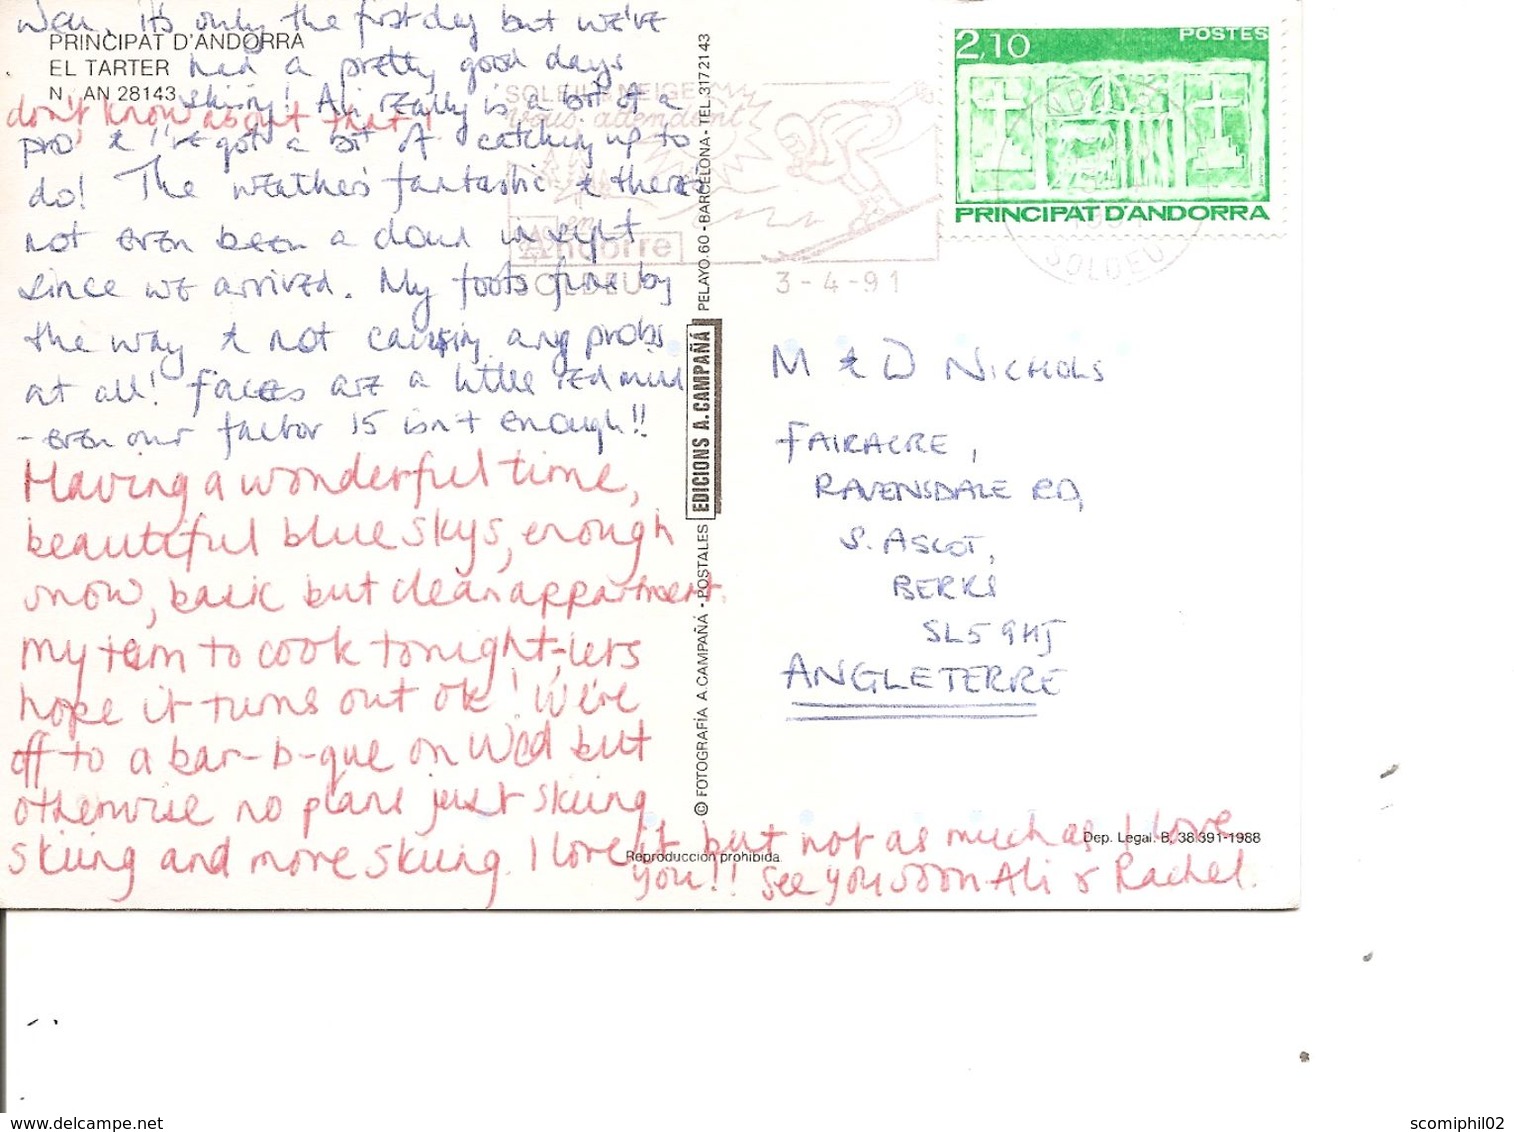 Well, it's only the first day but we've
PRINCIPAT D'ANDORRA
EL TARTER
N. AN 28143
had a pretty good days
skiing! Ali really is a bit of a
don't know about that!
pro & I've got a bit of catching up to
do! The weather's fantastic & there's
not even been a cloud in sight
since we arrived. My foots fine by
the way & not causing any probs
at all! Faces are a little red mind
- even our factor 15 isn't enough!!
Having a wonderful time,
beautiful blue skys, enough
snow, basic but clean appartment.
my turn to cook tonight, lets
hope it turns out ok! We're
off to a bar-b-que on Wed but
otherwise no plans just skiing
skiing and more skiing. I love it but not as much as I love
you!! See you soon Ali & Rachel.
SOLEIL NEIGE
vous attendent
en
Andorre
SOLDEU
3-4-91
2,10
POSTES
PRINCIPAT D'ANDORRA
SOLDEU
M & D NICHOLS
FAIRACRE,
RAVENSDALE RD,
S. ASCOT,
BERKS
SL5 9HJ
ANGLETERRE
© FOTOGRAFÍA A. CAMPAÑÁ - POSTALES EDICIONS A. CAMPAÑÁ PELAYO, 60 - BARCELONA - TEL. 317 21 43
Reproducción prohibida.
Dep. Legal. B, 38 391-1988
www.delcampe.net
scomiphil02